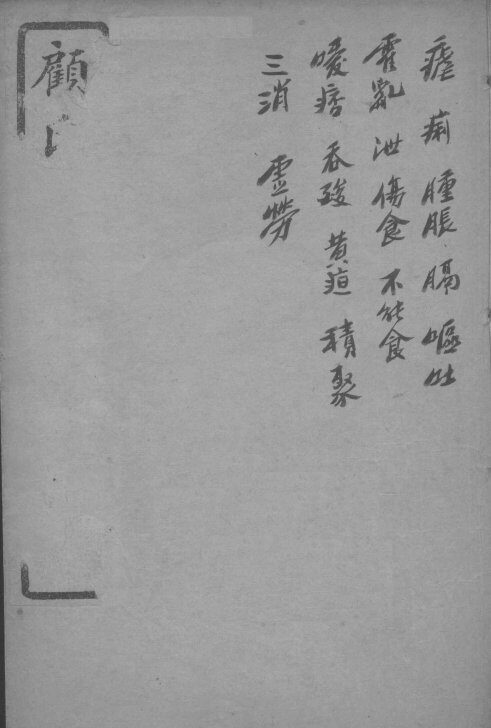 瘧 痢 腫脹 膈 嘔吐
霍亂 泄 傷食 不能食
噯 痞 吞酸 黄疸 積聚
三消 虛勞
顧